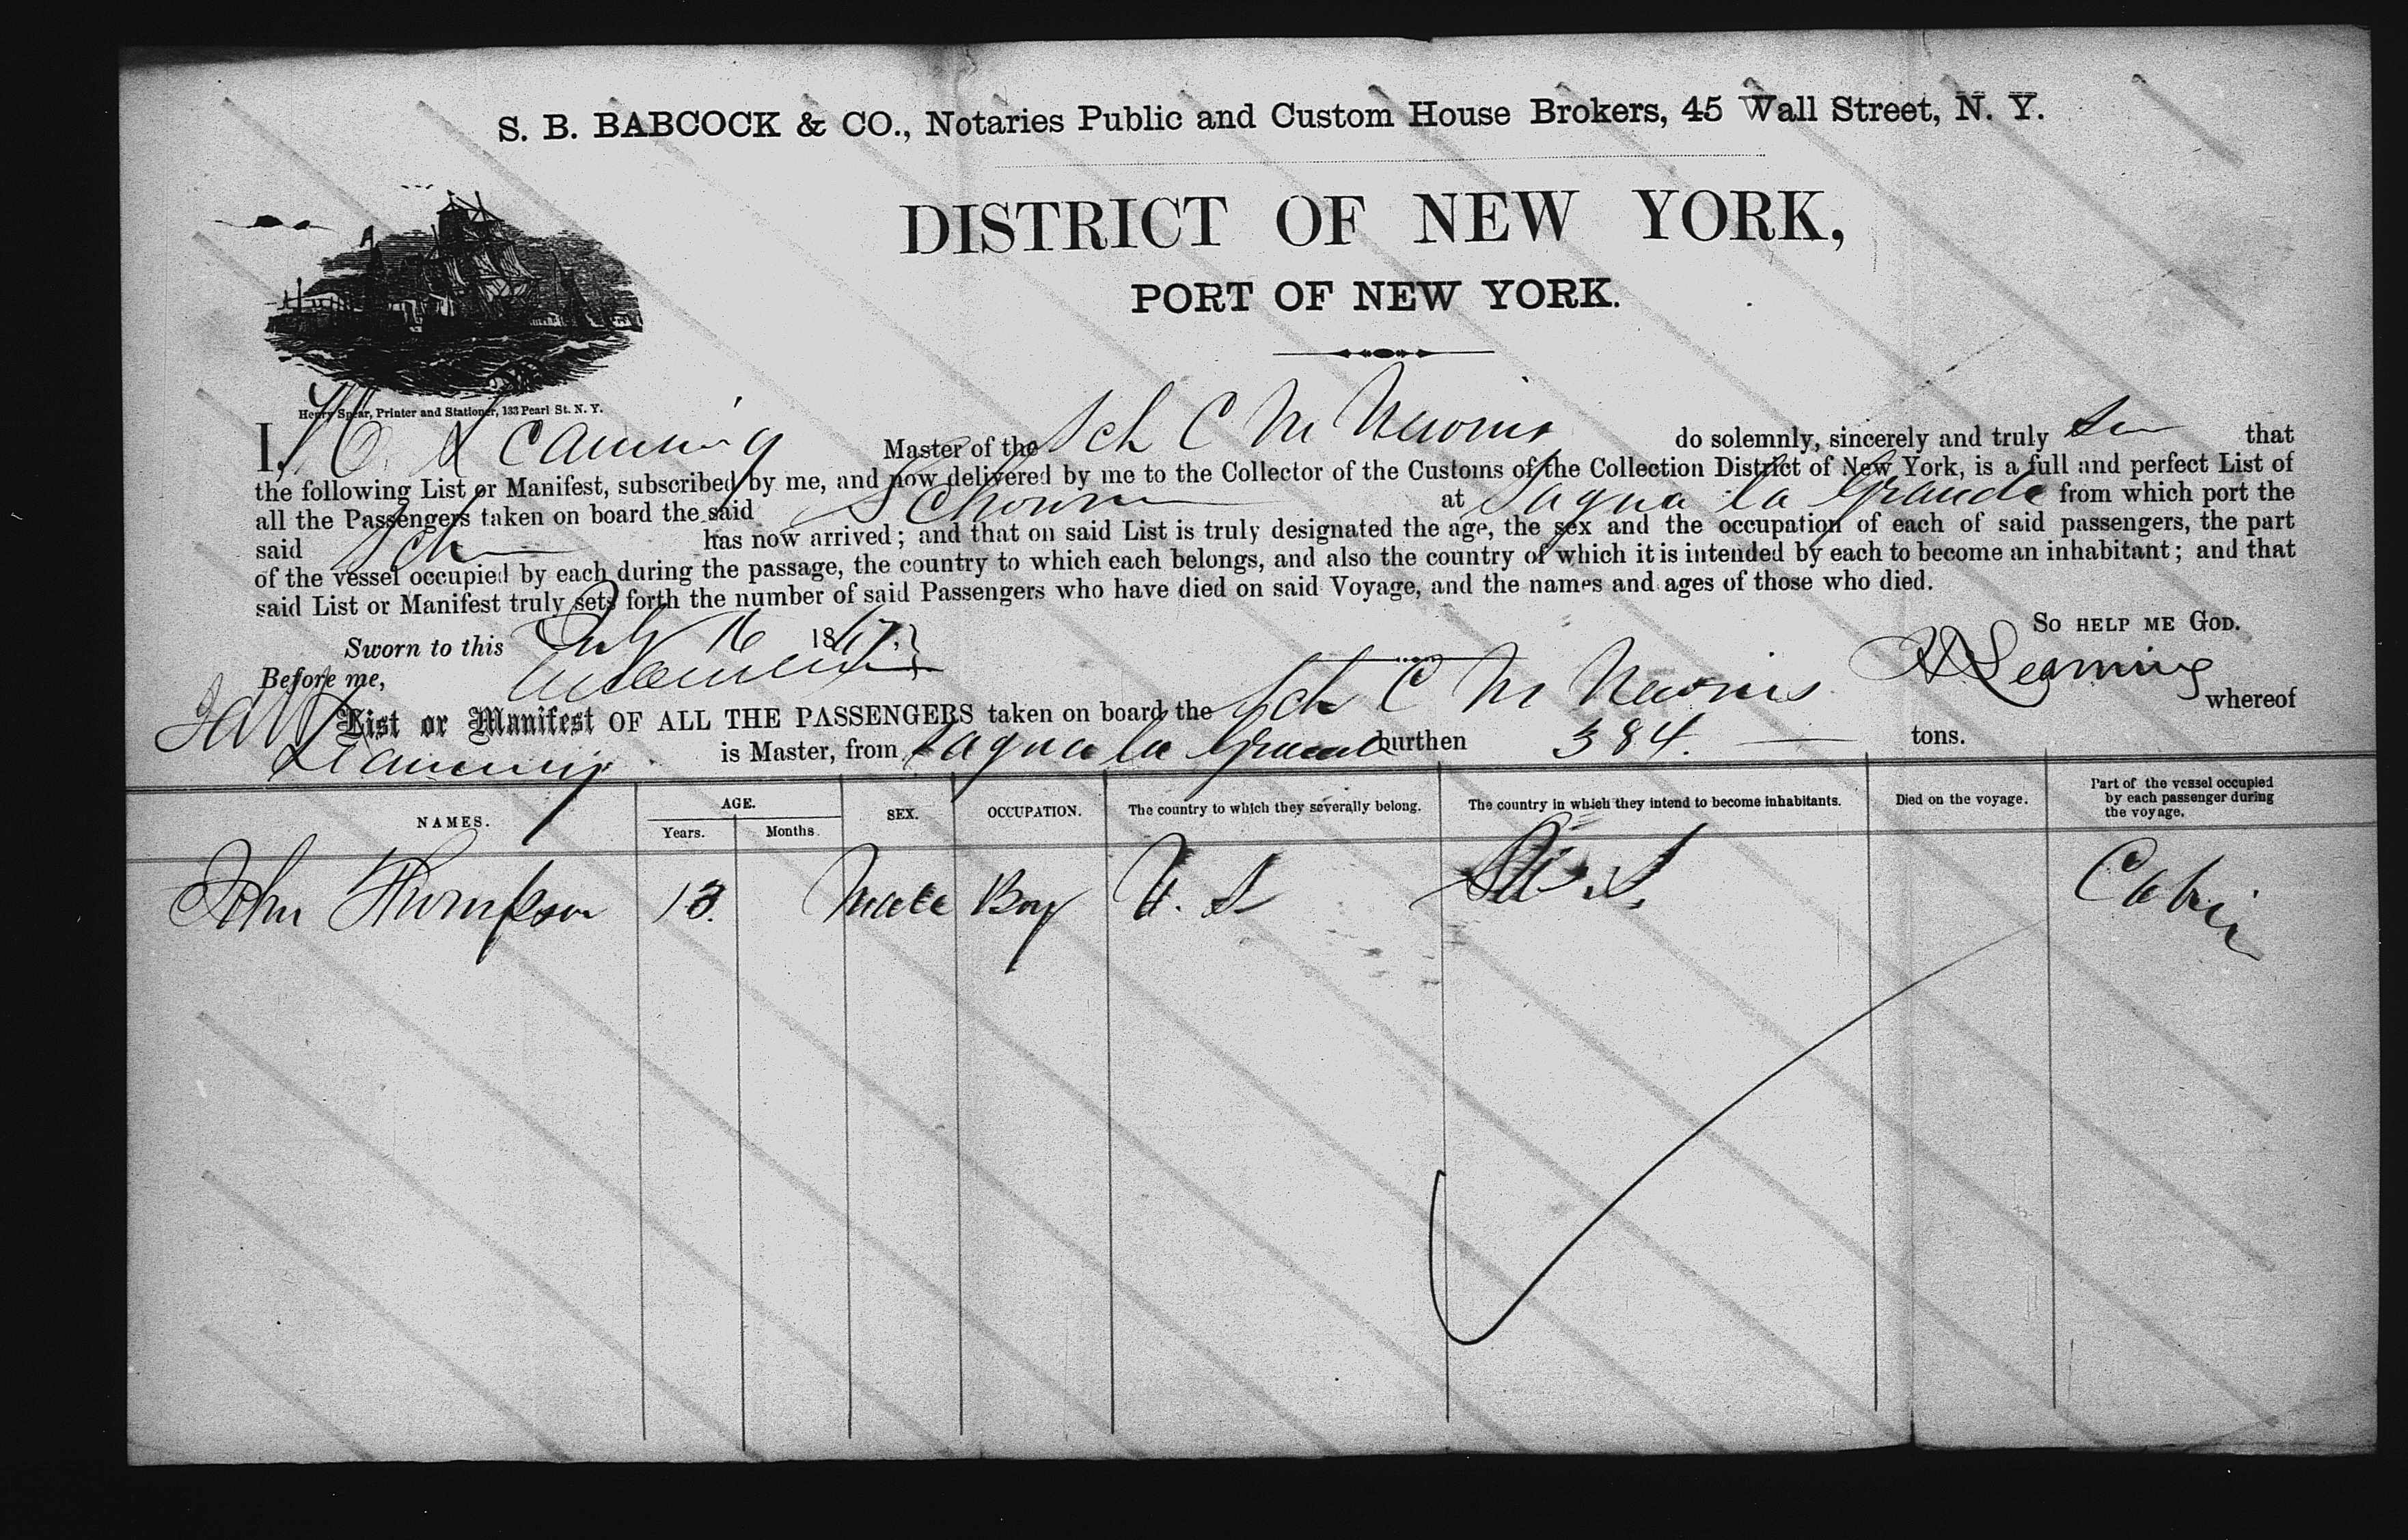 S. B. BABCOCK & CO., Notaries Public and Custom House Brokers, 45 Wall Street, N. Y.
DISTRICT OF NEW YORK,
PORT OF NEW YORK.
Henry Spear, Printer and Stationer, 133 Pearl St. N. Y.
I, Master of the Sch C M do solemnly, sincerely and truly that
the following List or Manifest, subscribed by me, and now delivered by me to the Collector of the Customs of the Collection District of New York, is a full and perfect List of
all the Passengers taken on board the said at Sagua la Grande from which port the
said Sch has now arrived; and that on said List is truly designated the age, the sex and the occupation of each of said passengers, the part
of the vessel occupied by each during the passage, the country to which each belongs, and also the country of which it is intended by each to become an inhabitant; and that
said List or Manifest truly sets forth the number of said Passengers who have died on said Voyage, and the names and ages of those who died.
So HELP ME GOD.
Sworn to this July 16 1867.
Before me, Leaming
List or Manifest OF ALL THE PASSENGERS taken on board the Sch C M whereof
is Master, from Sagua la Grande burthen 384. tons.
NAMES. AGE. Years. Months. SEX. OCCUPATION. The country to which they severally belong. The country in which they intend to become inhabitants. Died on the voyage. Part of the vessel occupied by each passenger during the voyage.
John Thompson 13. Male Boy U. S U. S. Cabin